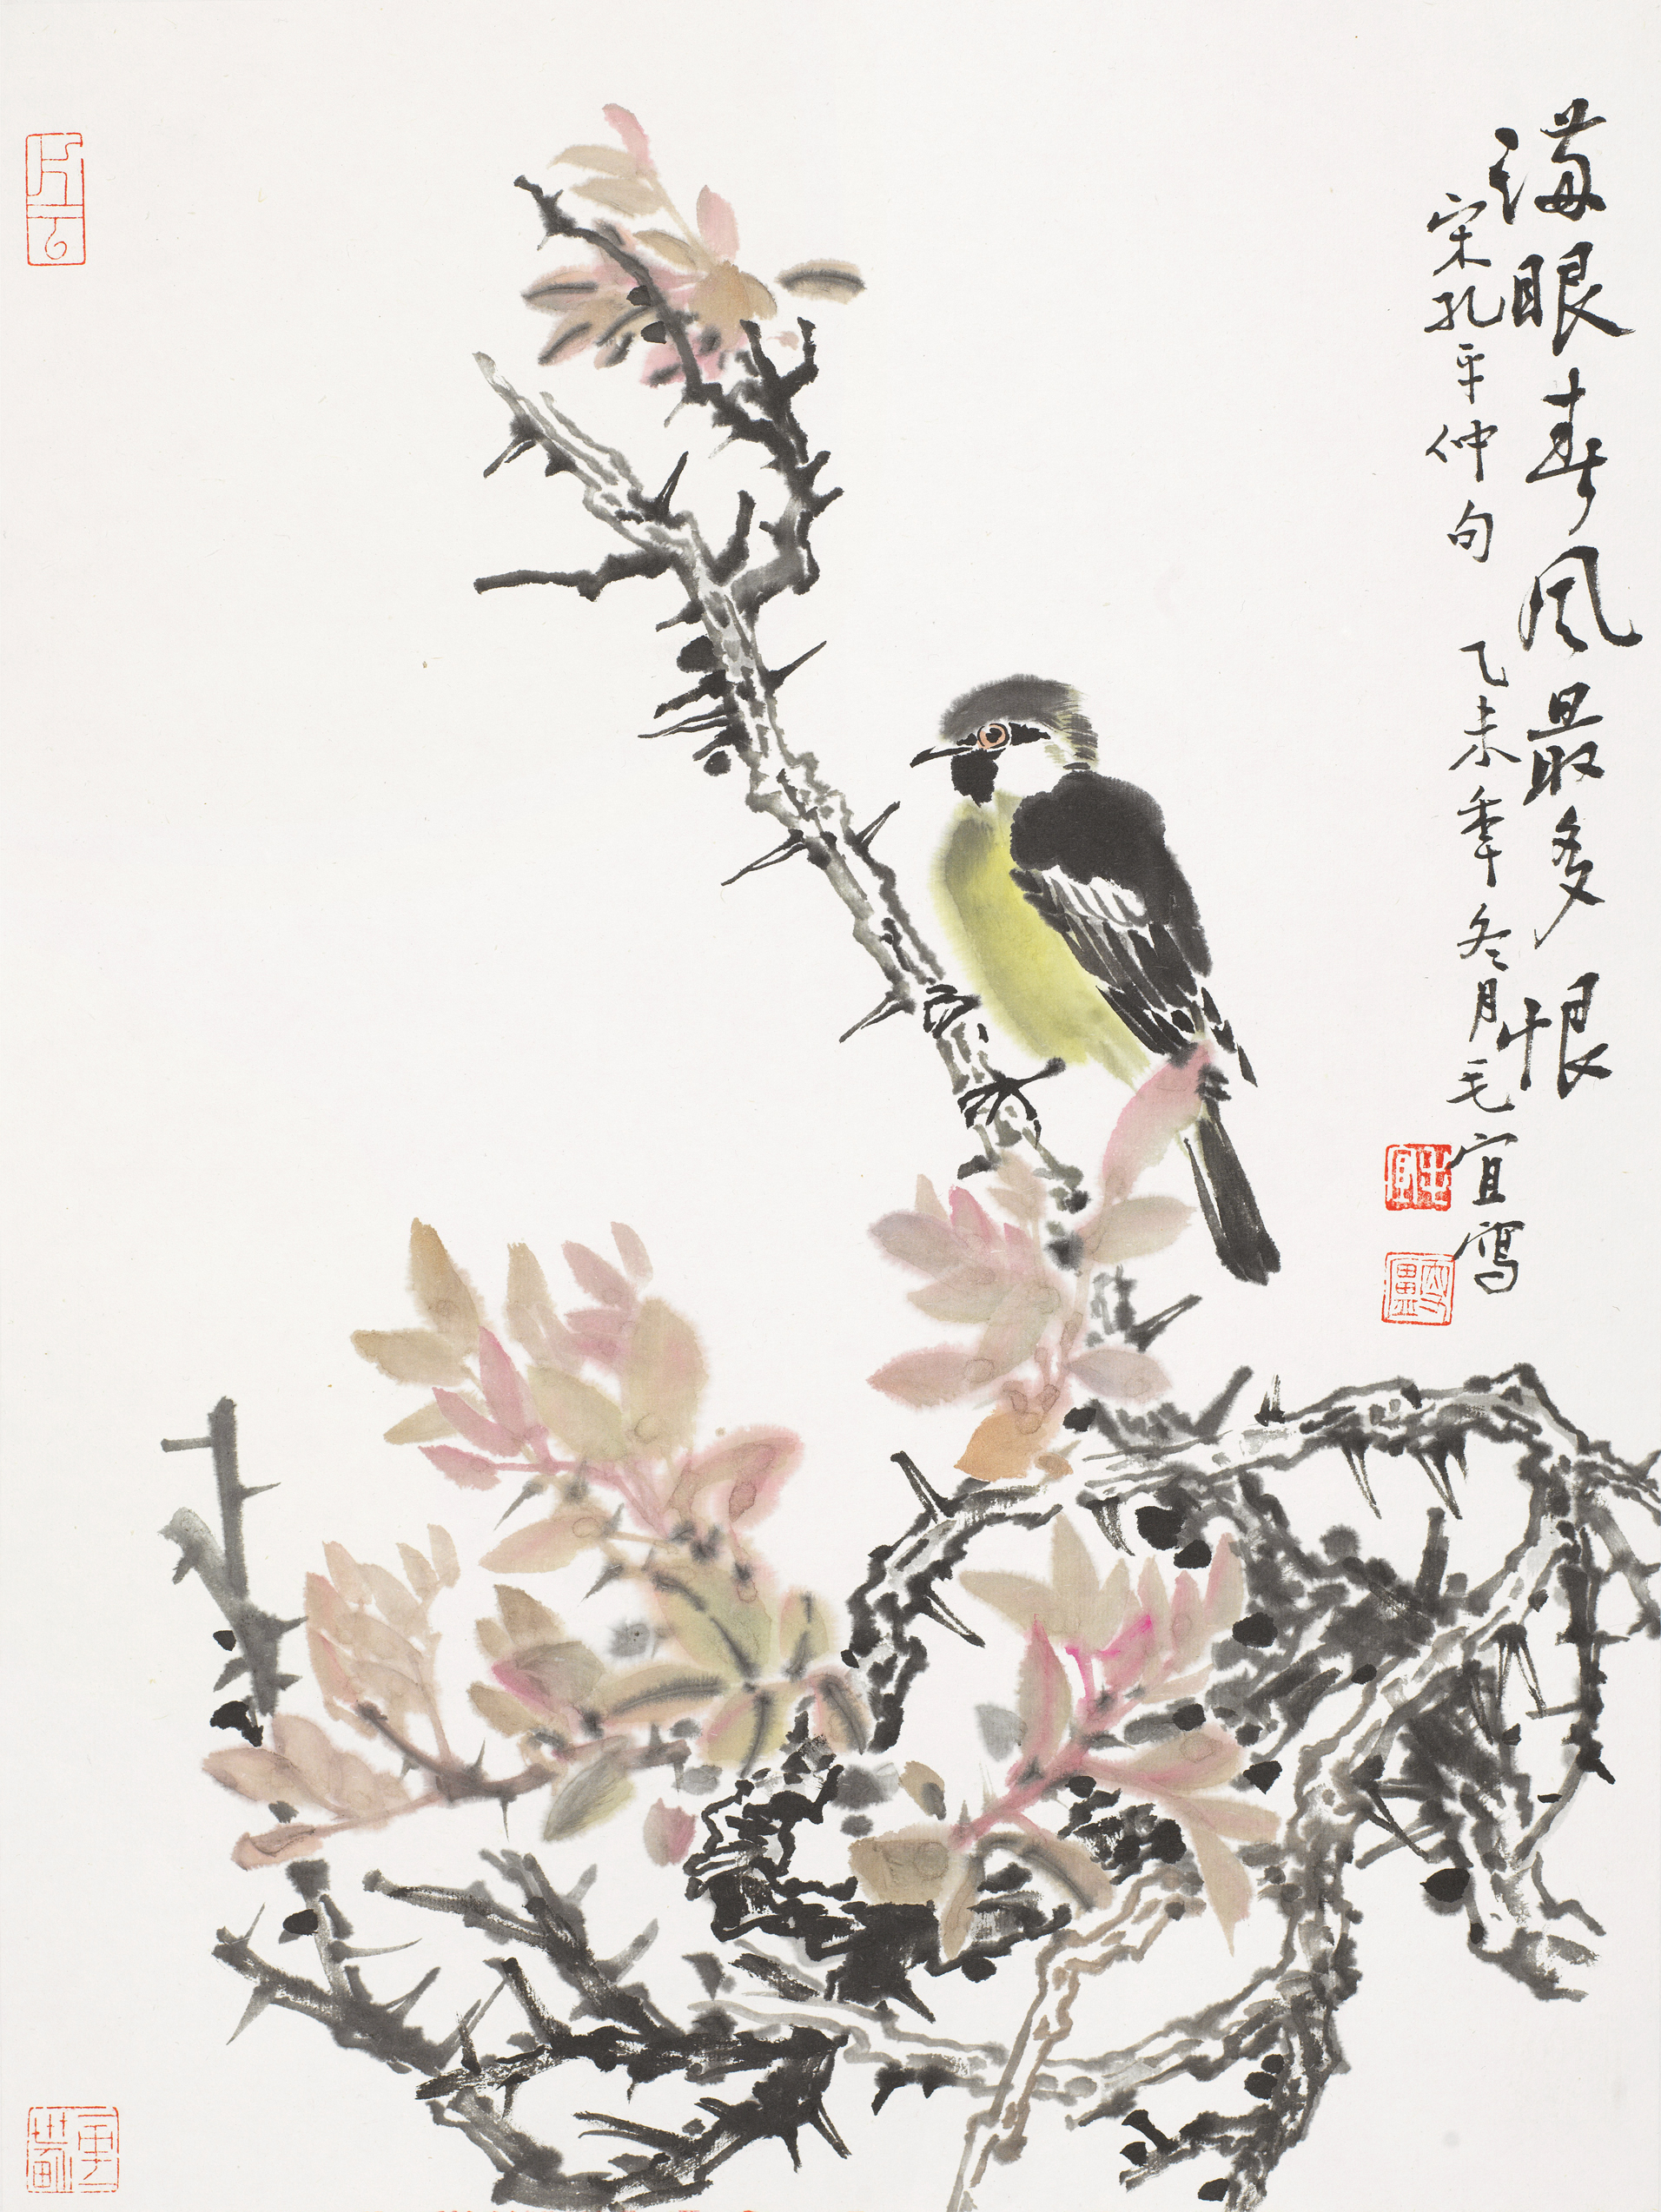 满眼春风最多恨
宋孔平仲句 乙未秊冬月毛宜寫
片云